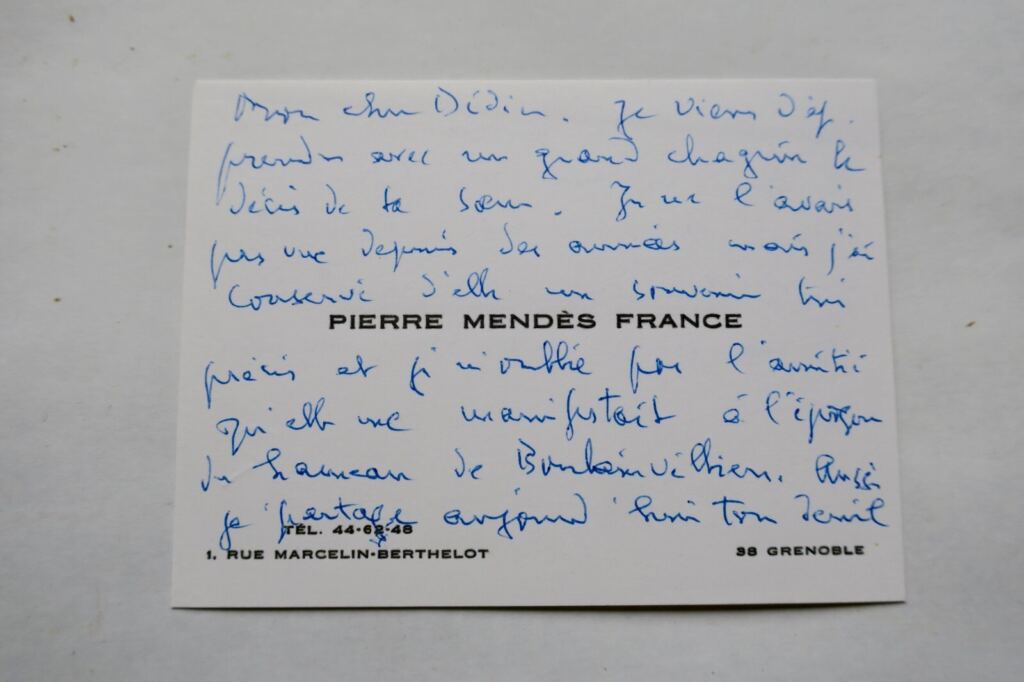 Mon cher Didier. Je viens d'ap-
prendre avec un grand chagrin le
décès de ta sœur. Je ne l'avais
pas vue depuis des années mais j'ai
conservé d'elle un souvenir très
PIERRE MENDÈS FRANCE
précis et je n'oublie pas l'amitié
qu'elle me manifestait à l'époque
du hameau de Boulainvilliers. Aussi
je partage aujourd'hui ton deuil
TÉL. 44-62-48
1, RUE MARCELIN-BERTHELOT 38 GRENOBLE